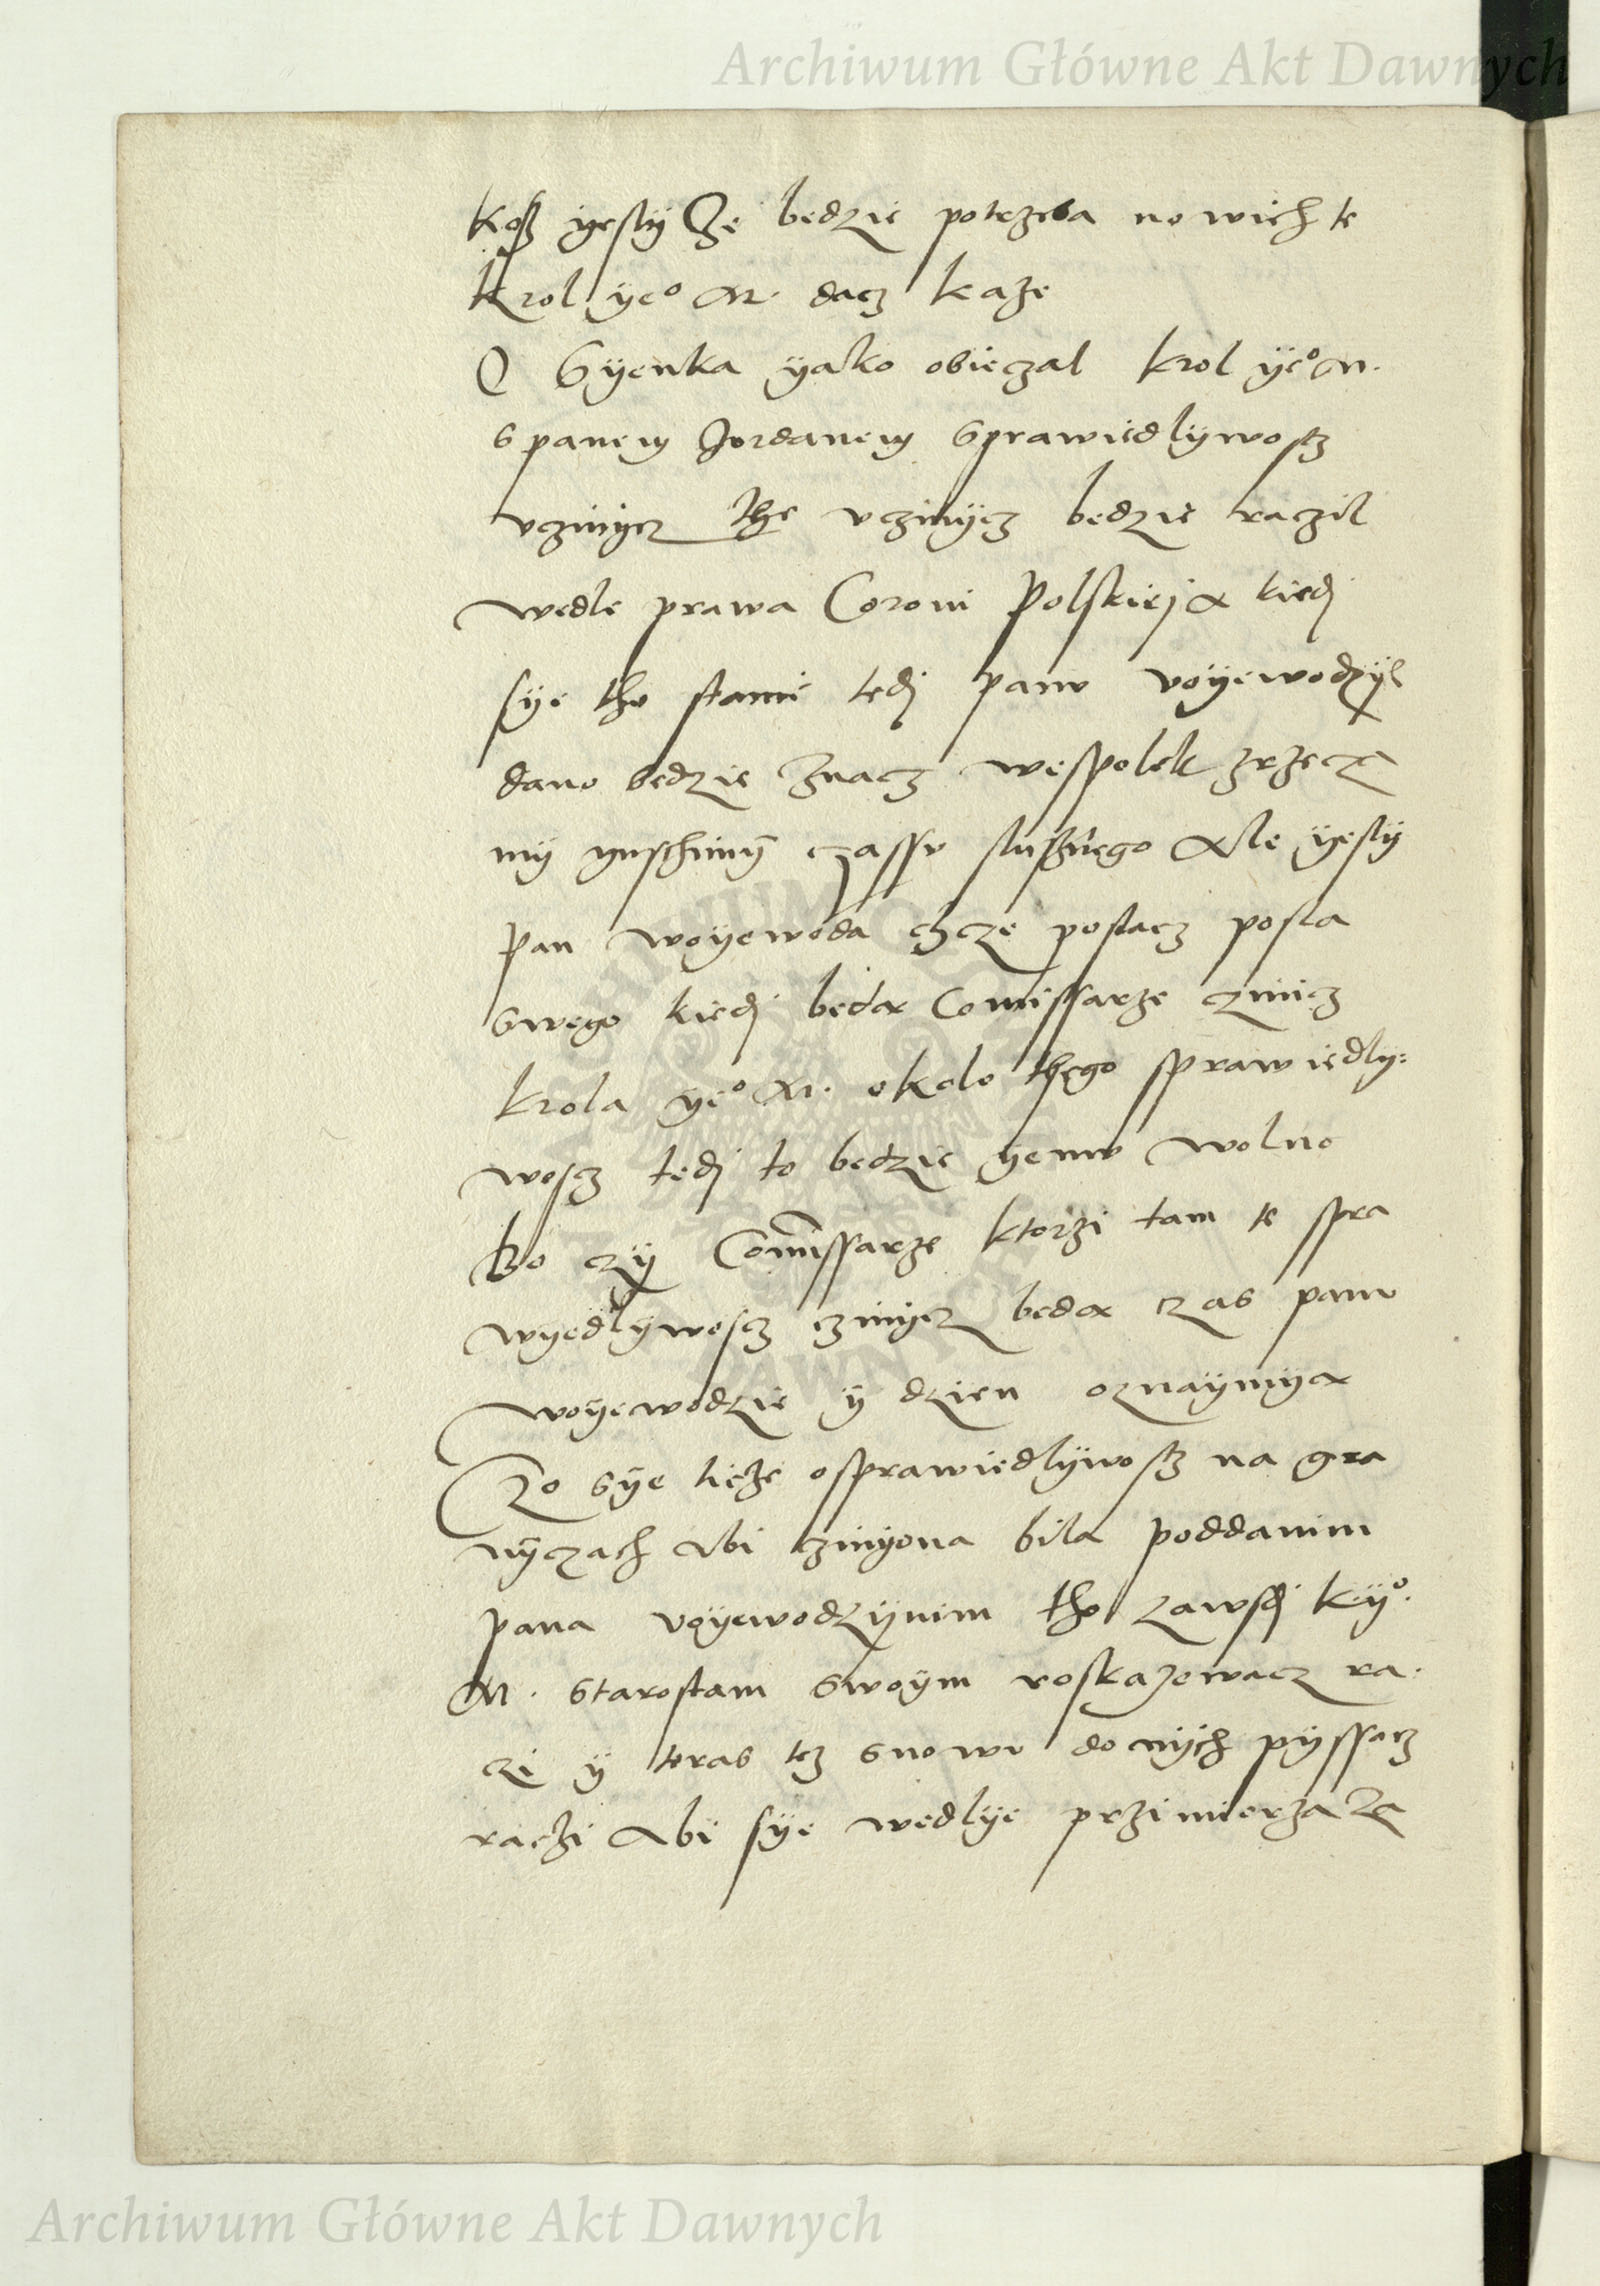 Archiwum Główne Akt Dawnych
Kosz yesly Że bedzie potrzeba nowich te
krol ye° M. dacz każe
O Syenka yako obieczal krol ye° M.
s panem Jordanem sprawiedlywoscz
vczinycz the vczinycz bedzie raczil
wedle prawa Coroni Polskiej A kiedj
sye tho stanie tedj panv voyewodzye
dano bedzie znacz wespolek zrzecza
my ynschimy czassv slusznego Ale yesly
pan woyewoda chcze poslacz posla
swego kiedj beda Comissarze czinicz
krola ye° M. okolo thego sprawiedly=
woscz tedj to bedzie yemv wolno
Bo czy Comissarze ktorzi tam te spra
wyedlywoscz czinycz beda czas panv
woyewodzie y dzien oznaymya
Czo sye ticze o sprawiedlywoscz na gra
nyczach Abi czinyona bila poddanim
pana voyewodzynim tho zawsdj k. y°.
M. starostam swoym roskazowacz ra.
czi y teras tez snowv do nych pyssacz
raczi Abi sye wedlye przimierza za
Archiwum Główne Akt Dawnych